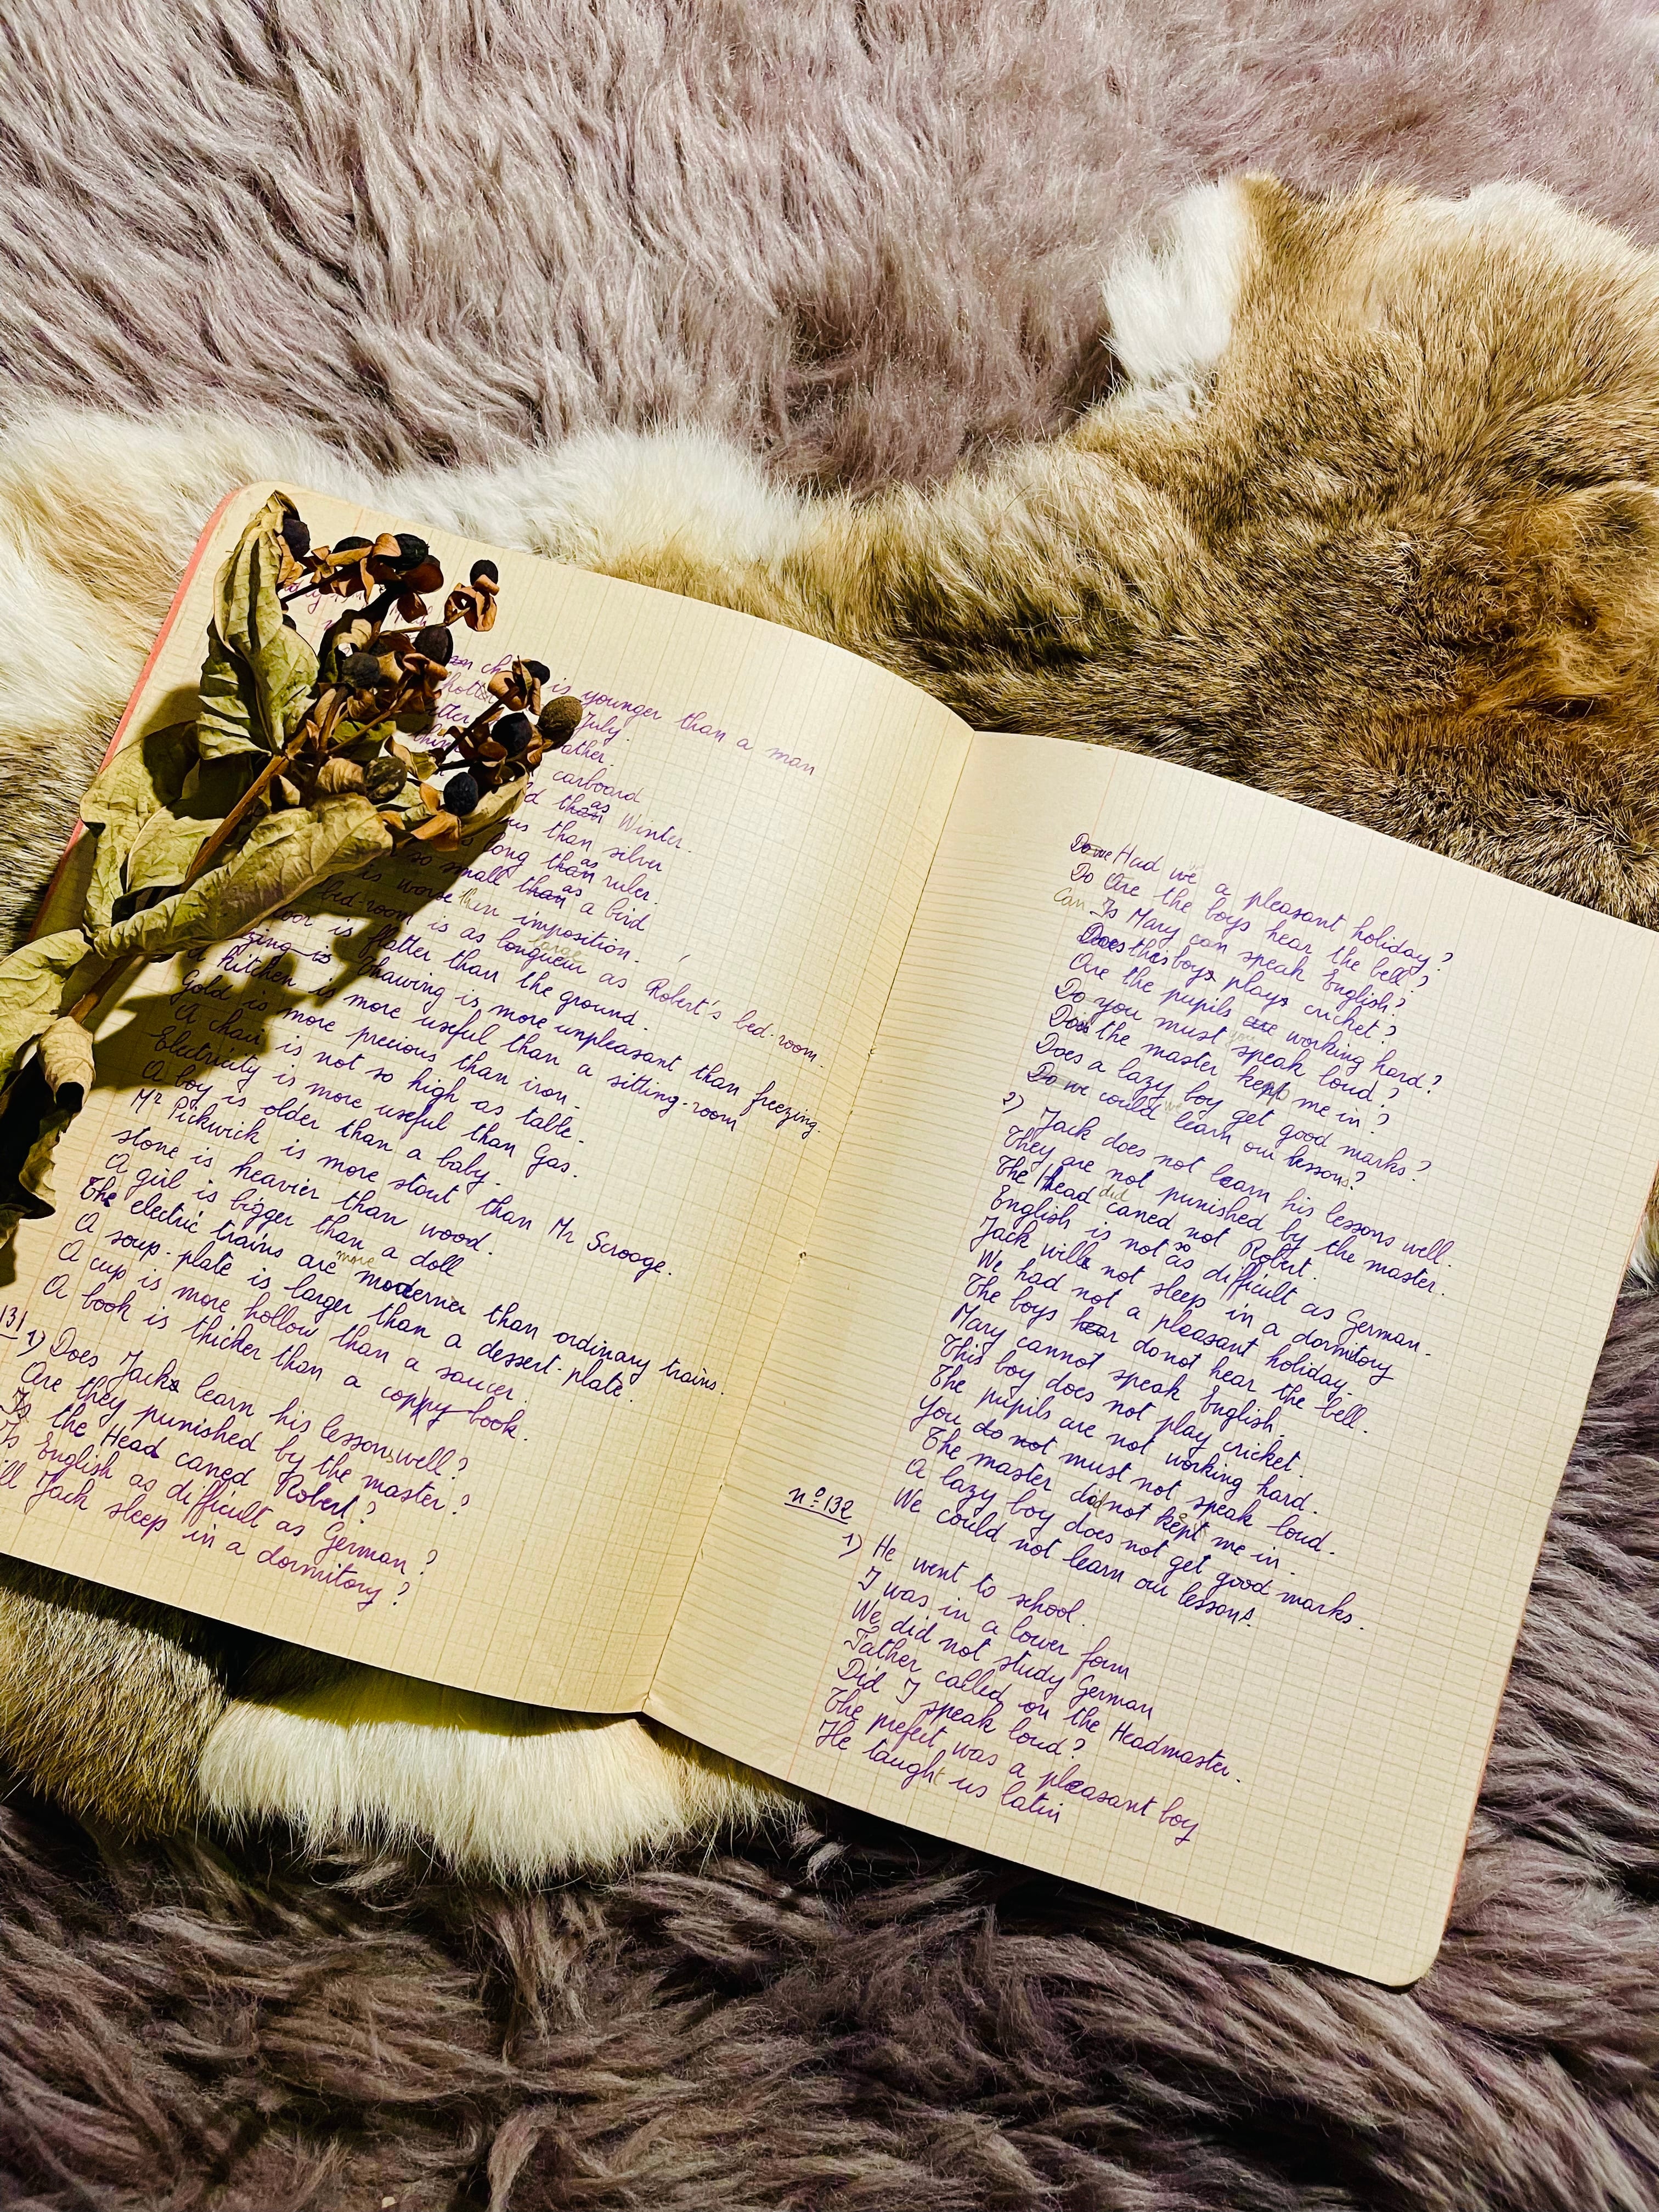 is younger than a man
July.
carboard
than as Winter.
than silver
long than as ruler.
so small than as a bird
is worse then imposition.
bed-room is as longueur large as Robert's bed-room.
is flatter than the ground.
is Chawing is more unpleasant than freezing.
a kitchen is more useful than a sitting-room
Gold is more precious than iron.
A chair is not so high as table.
Electricity is more useful than Gas.
A boy is older than a baby.
Mr Pickwick is more stout than Mr Scrooge.
stone is heavier than wood.
A girl is bigger than a doll
The electric trains are more moderner than ordinary trains.
A soup-plate is larger than a dessert-plate.
A cup is more hollow than a saucer.
A book is thicker than a coppy-book.
131
1) Does Jacks learn his lessons well?
Are they punished by the master?
Is the Head caned Robert?
Is English as difficult as German?
Jack sleep in a dormitory?
Do we Had we a pleasant holiday?
Do Are the boys hear the bell?
Can Is Mary can speak English?
Does this boys plays cricket?
Are the pupils are working hard?
Do you must you speak loud?
Does the master kept me in?
Does a lazy boy get good marks?
Do we could we learn our lessons?
2) Jack does not learn his lessons well.
They are not punished by the master.
The Head did caned not Robert.
English is not so as difficult as German.
Jack will not sleep in a dormitory
We had not a pleasant holiday.
The boys hear do not hear the bell.
Mary cannot speak English.
This boy does not play cricket.
The pupils are not working hard.
You do not must not speak loud.
The master did not kept me in.
A lazy boy does not get good marks.
We could not learn our lessons.
nº 132
1) He went to school.
I was in a lower form
We did not study German
Father called on the Headmaster.
Did I speak loud?
The prefect was a pleasant boy
He taught us latin